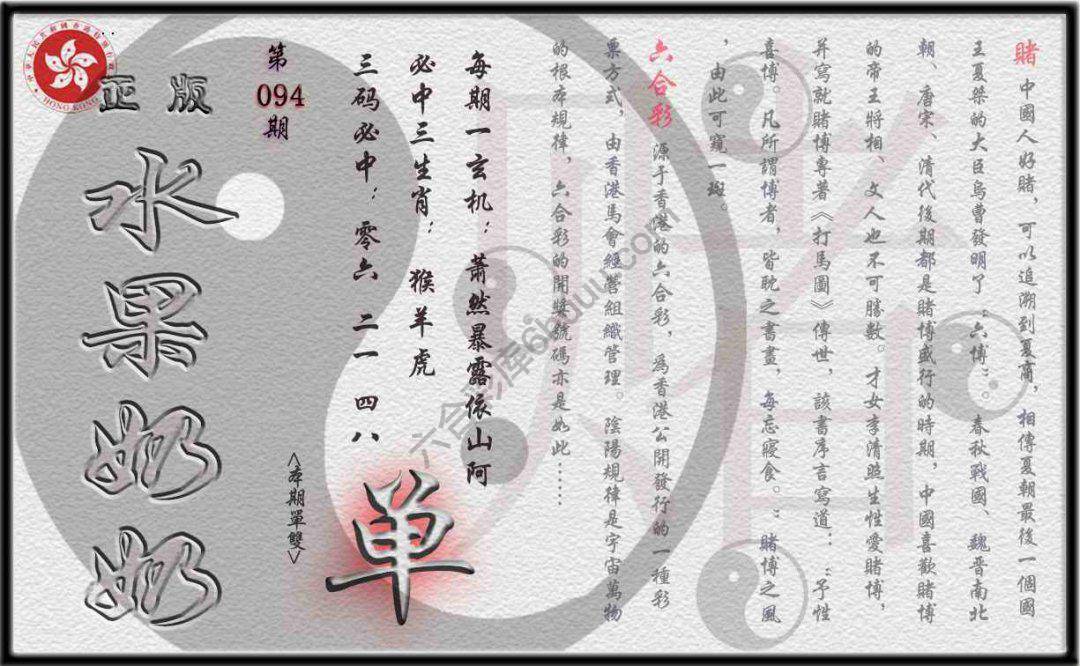 賭 中國人好賭，可以追溯到夏商，相傳夏朝最後一個國
王夏桀的大臣烏曹發明了：六博：。春秋戰國、魏晋南北
朝、唐宋、清代後期都是賭博盛行的時期，中國喜歡賭博
的帝王將相、文人也不可勝數。才女李清照生性愛賭博，
并寫就賭博專著《打馬圖》傳世，該書序言寫道：：予性
喜博。凡所謂博者，皆耽之書畫，每忘寢食。：賭博之風
，由此可窺一斑。
六合彩 源于香港的六合彩，為香港公開發行的一種彩
票方式，由香港馬會經營組織管理。陰陽規律是宇宙萬物
的根本規律，六合彩的開獎號碼亦是如此……
每期一玄机：蕭然暴露依山阿
必中三生肖：猴羊虎
三码必中：零六 二一 四八
第
094
期
單
<本期單雙>
正版
水果奶奶
HONG KONG
六合彩库6huuu.com
賭